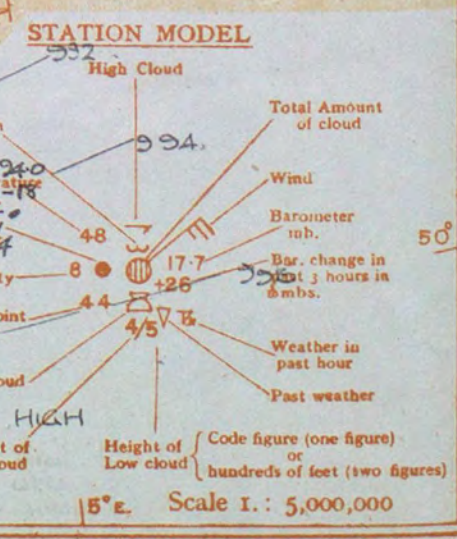 STATION MODEL
992
High Cloud
Total Amount
of cloud
994.
Wind
Barometer
mb.
50°
48
8
17.7
Bar. change in
3 hours in
mbs.
+26
996
44
4/5
Weather in
past hour
Past weather
HIGH
Height of
Low cloud
Code figure (one figure)
or
hundreds of feet (two figures)
5° E.
Scale 1.: 5,000,000